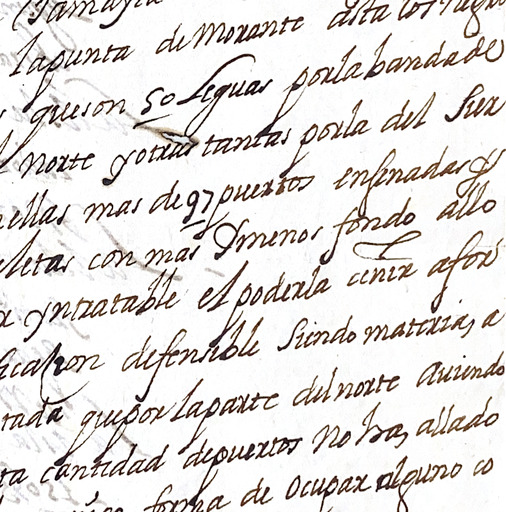 Jamayca
la punta de Morante asta los Negri
s que son 50 leguas por la banda de
l norte y otras tantas por la del Sur
ellas mas de 97 puertos ensenadas y
eletas con mas y menos fondo allo
r yntratable el poderla ceñir a for
ficacion defensible siendo materia, a
tada que por la parte del norte aviendo
ta cantidad de puertos no ha, allado
forma de ocupar alguno co